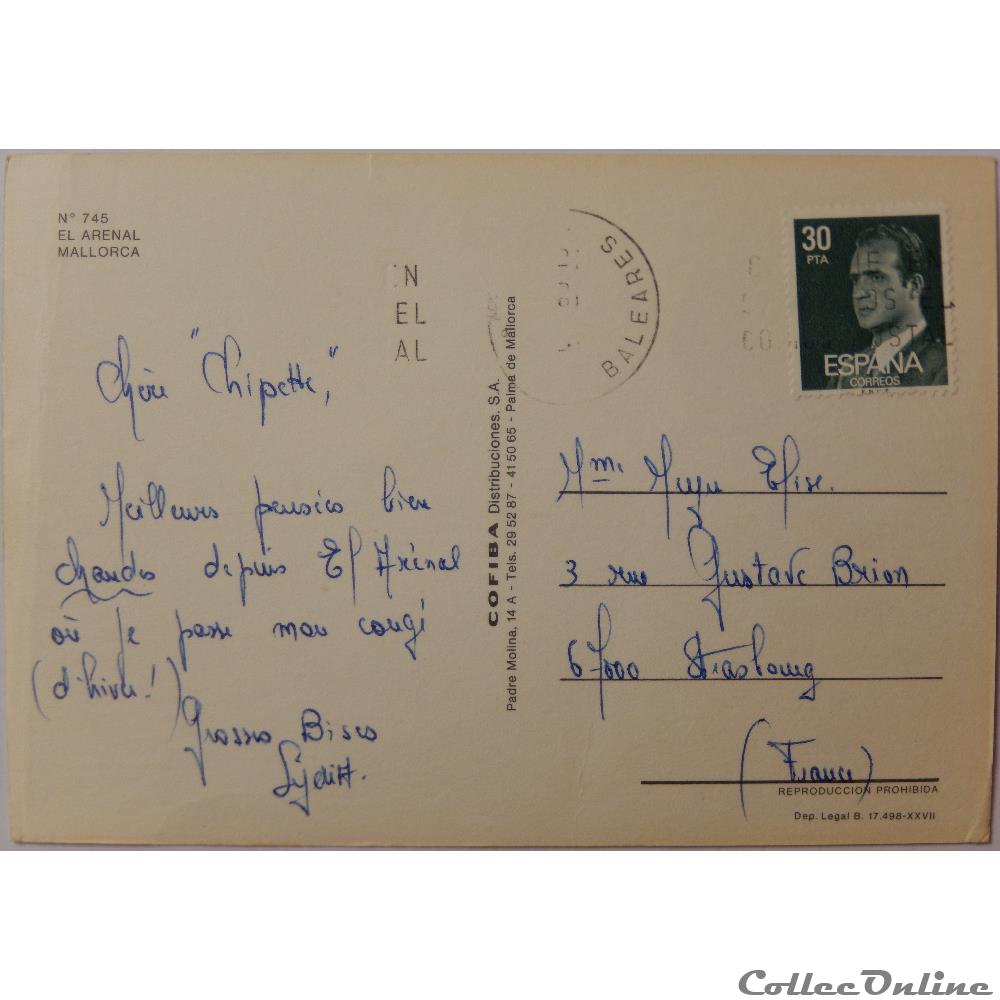 N° 745
EL ARENAL
MALLORCA
Chère "Chipette",
Meilleurs pensées bien
chaudes depuis El Arénal
où je passe mon congé
(d'hiver!)
Grosses Bises
COFIBA Distribuciones, S.A.
Padre Molina, 14 A - Tels. 29 52 87 - 41 50 65 - Palma de Mallorca
EL
AL
BALEARES
30
PTA
ESPAÑA
CORREOS
Mme Elise.
3 rue Gustave Brion
67000 Strasbourg
(France)
REPRODUCCION PROHIBIDA
Dep. Legal B. 17.498-XXVII
CollecOnline